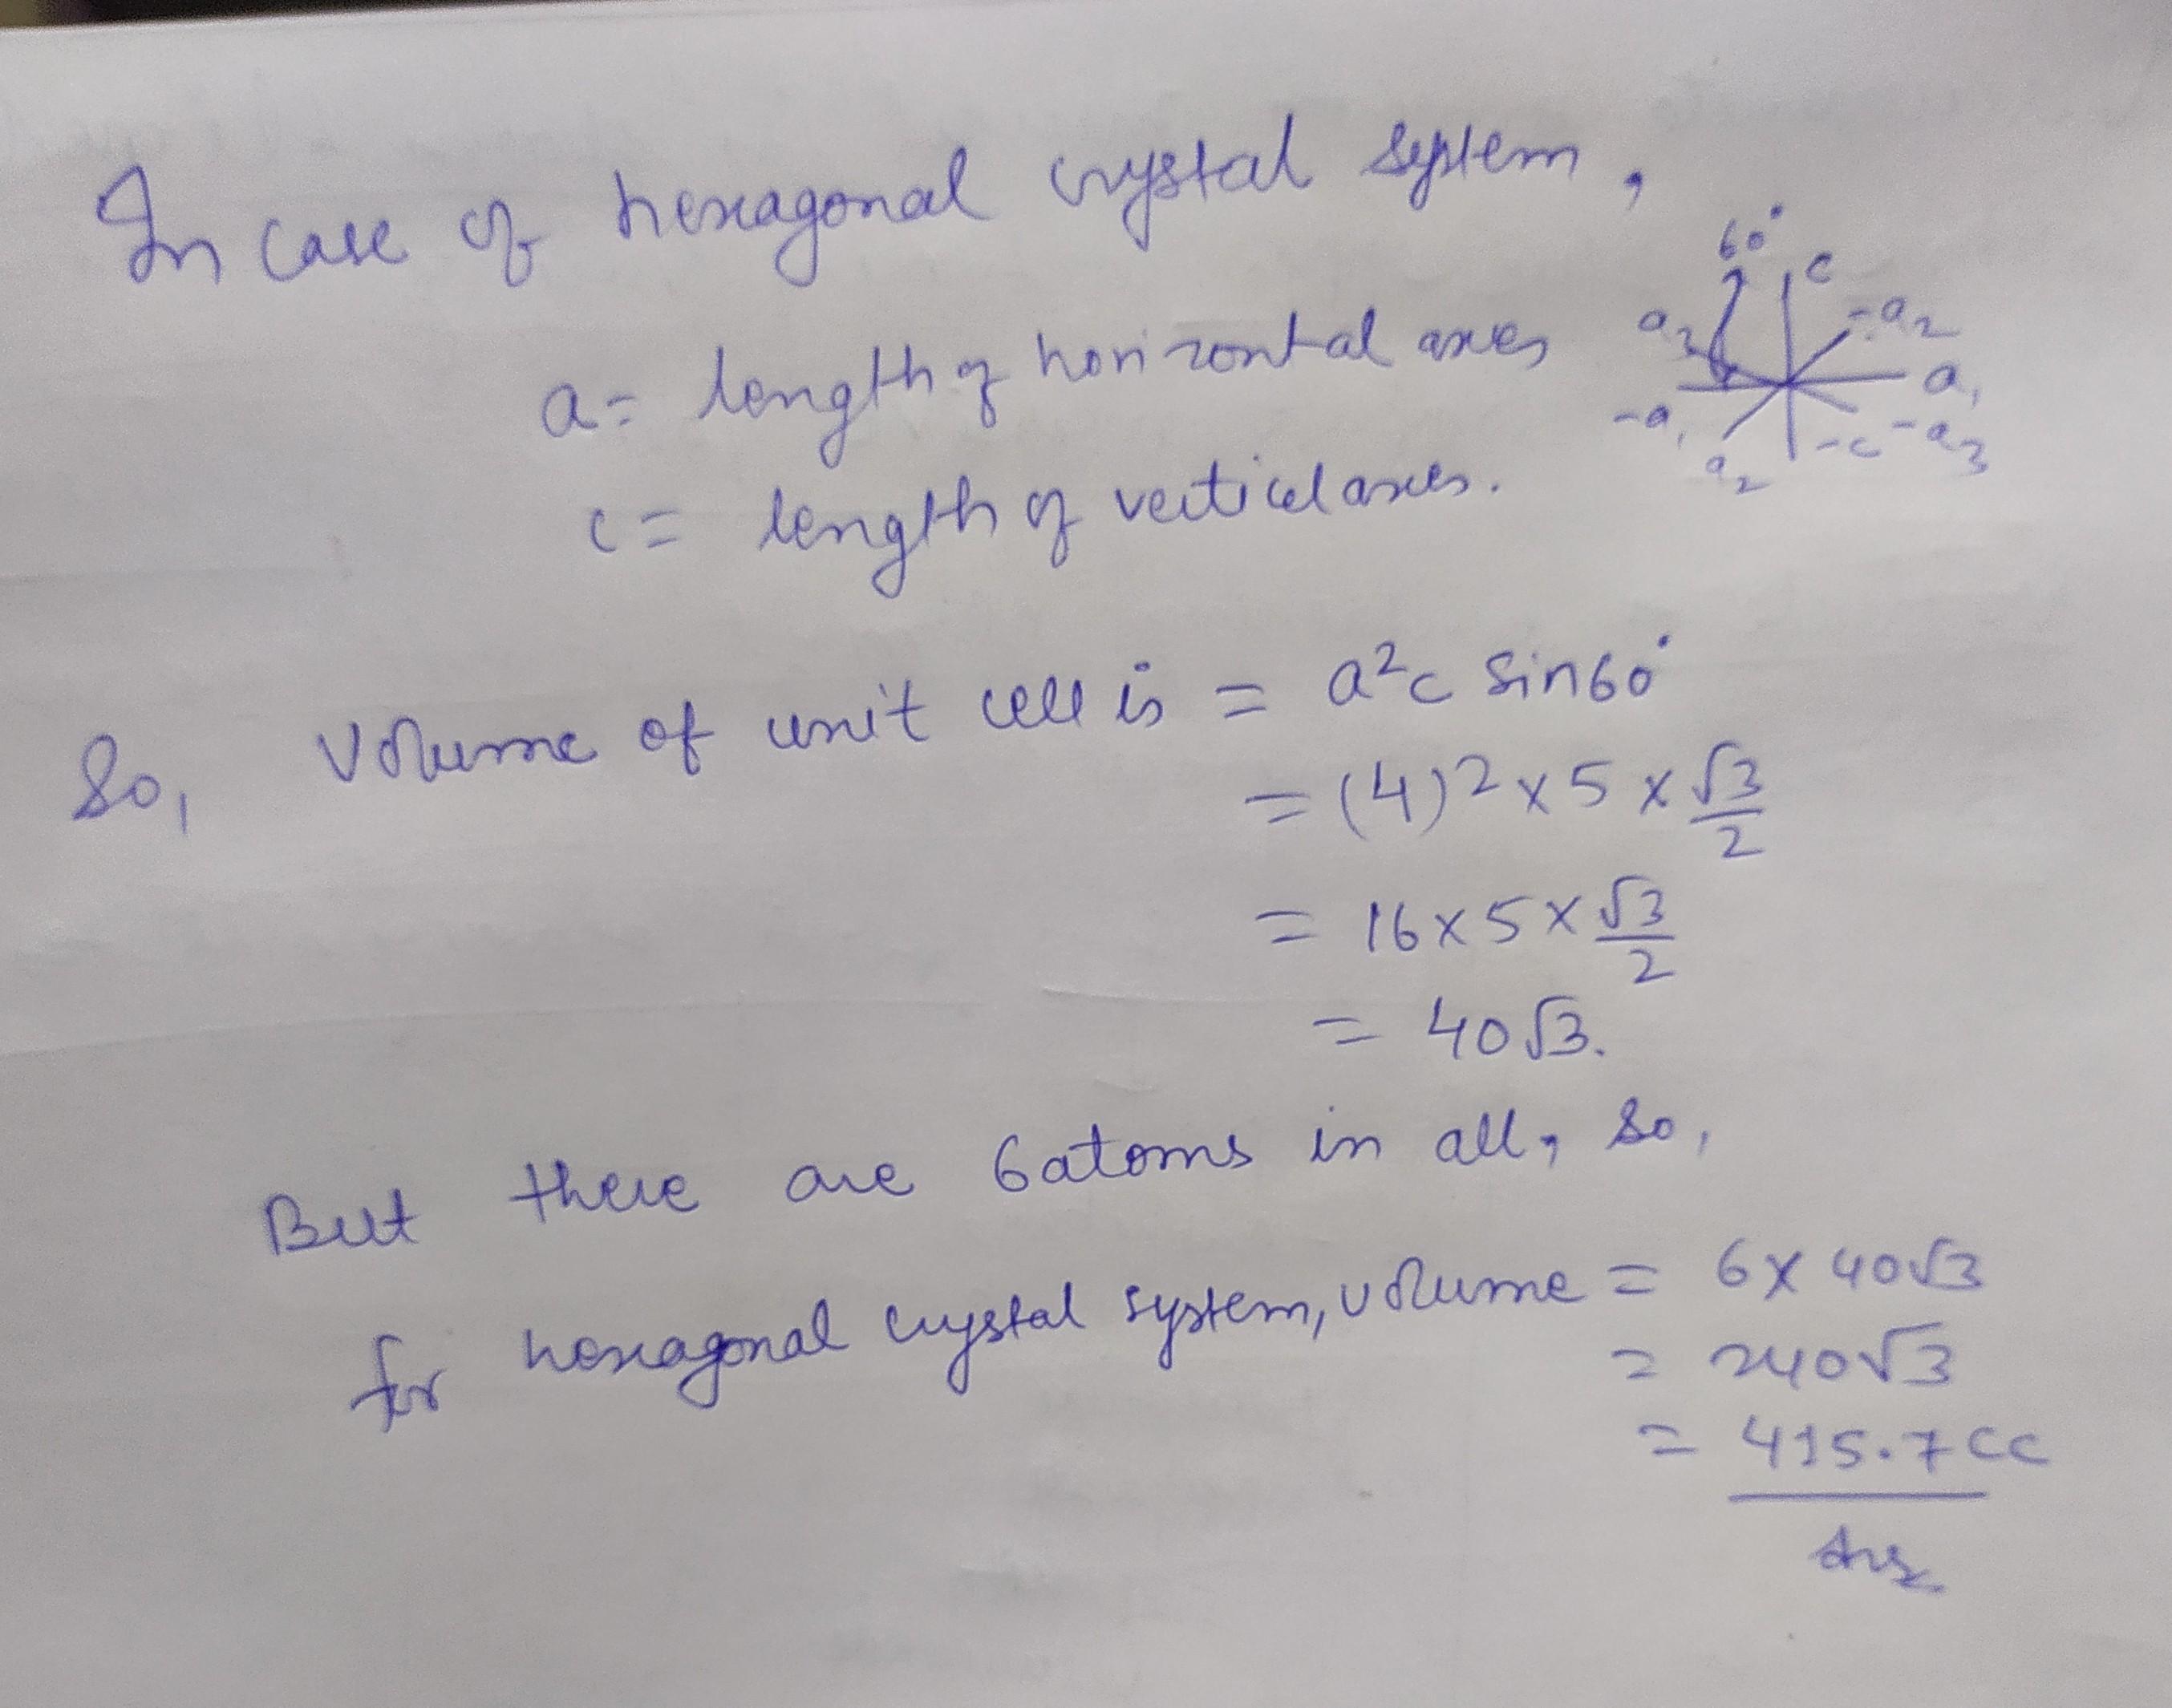 In case of hexagonal crystal system,
60°
c
a3
-a2
a1
-a1
a2
-c
-a3
a = length of horizontal axes
c = length of vertical axes.
So, Volume of unit cell is = a²c sin60°
= (4)² x 5 x √3/2
= 16 x 5 x √3/2
= 40√3.
But there are 6 atoms in all, So,
for hexagonal crystal system, volume = 6 x 40√3
= 240√3
= 415.7 cc
Ans